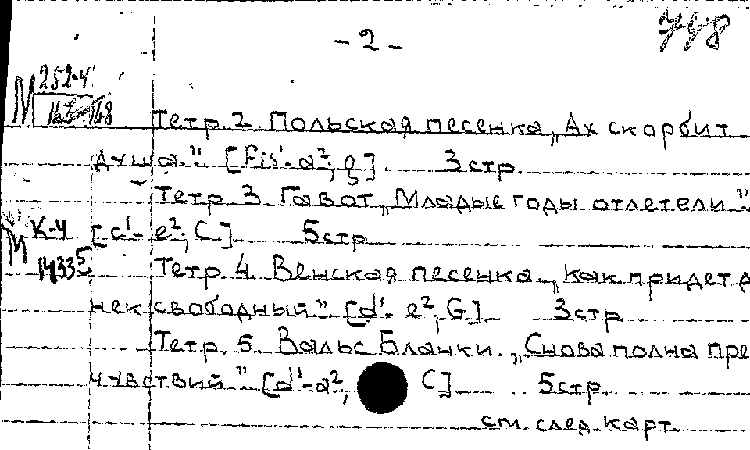 - 2 -
748
М 252-4
163-168
Тетр. 2. Польская песенка „Ах скорбит
душа." [fis¹-a², g] 3 стр.
Тетр. 3. Гавот „Младые годы отлетели"
К-4 [c¹- e², C] 5 стр
14335 Тетр. 4. Венская песенка „Как придет д
нек свободный" [d¹- e², G] 3 стр
Тетр. 5. Вальс Бланки. „Снова полна пре
чувствий" [d¹-a², C] 5 стр
см. след. карт.